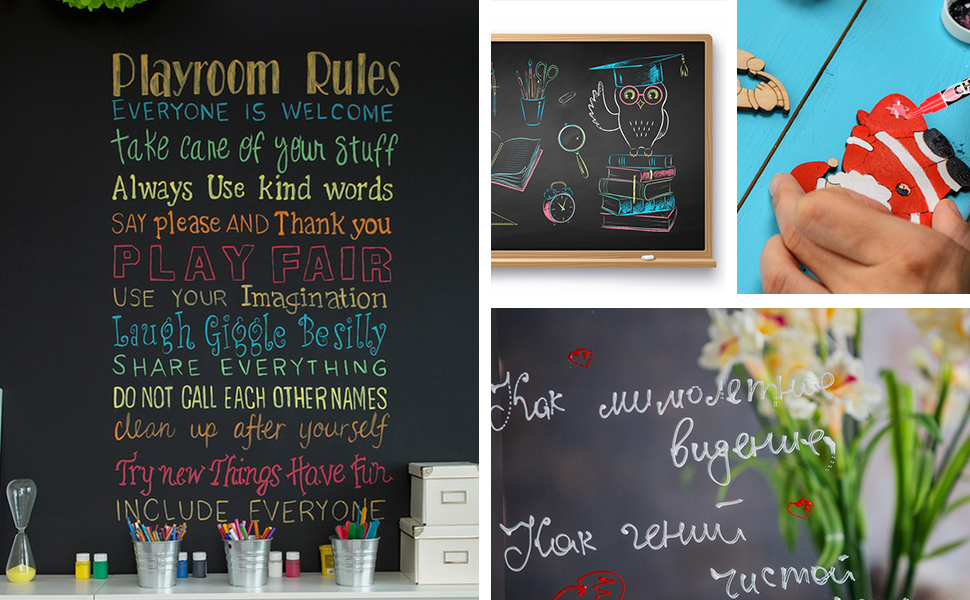 Playroom Rules
EVERYONE IS WELCOME
take care of your stuff
Always Use kind words
SAY please AND Thank you
PLAY FAIR
USE YOUR Imagination
Laugh Giggle Be silly
SHARE EVERYTHING
DO NOT CALL EACH OTHER NAMES
clean up after yourself
Try new Things Have fun
INCLUDE EVERYONE
Как мимолетное
видение,
Как гений
чистой